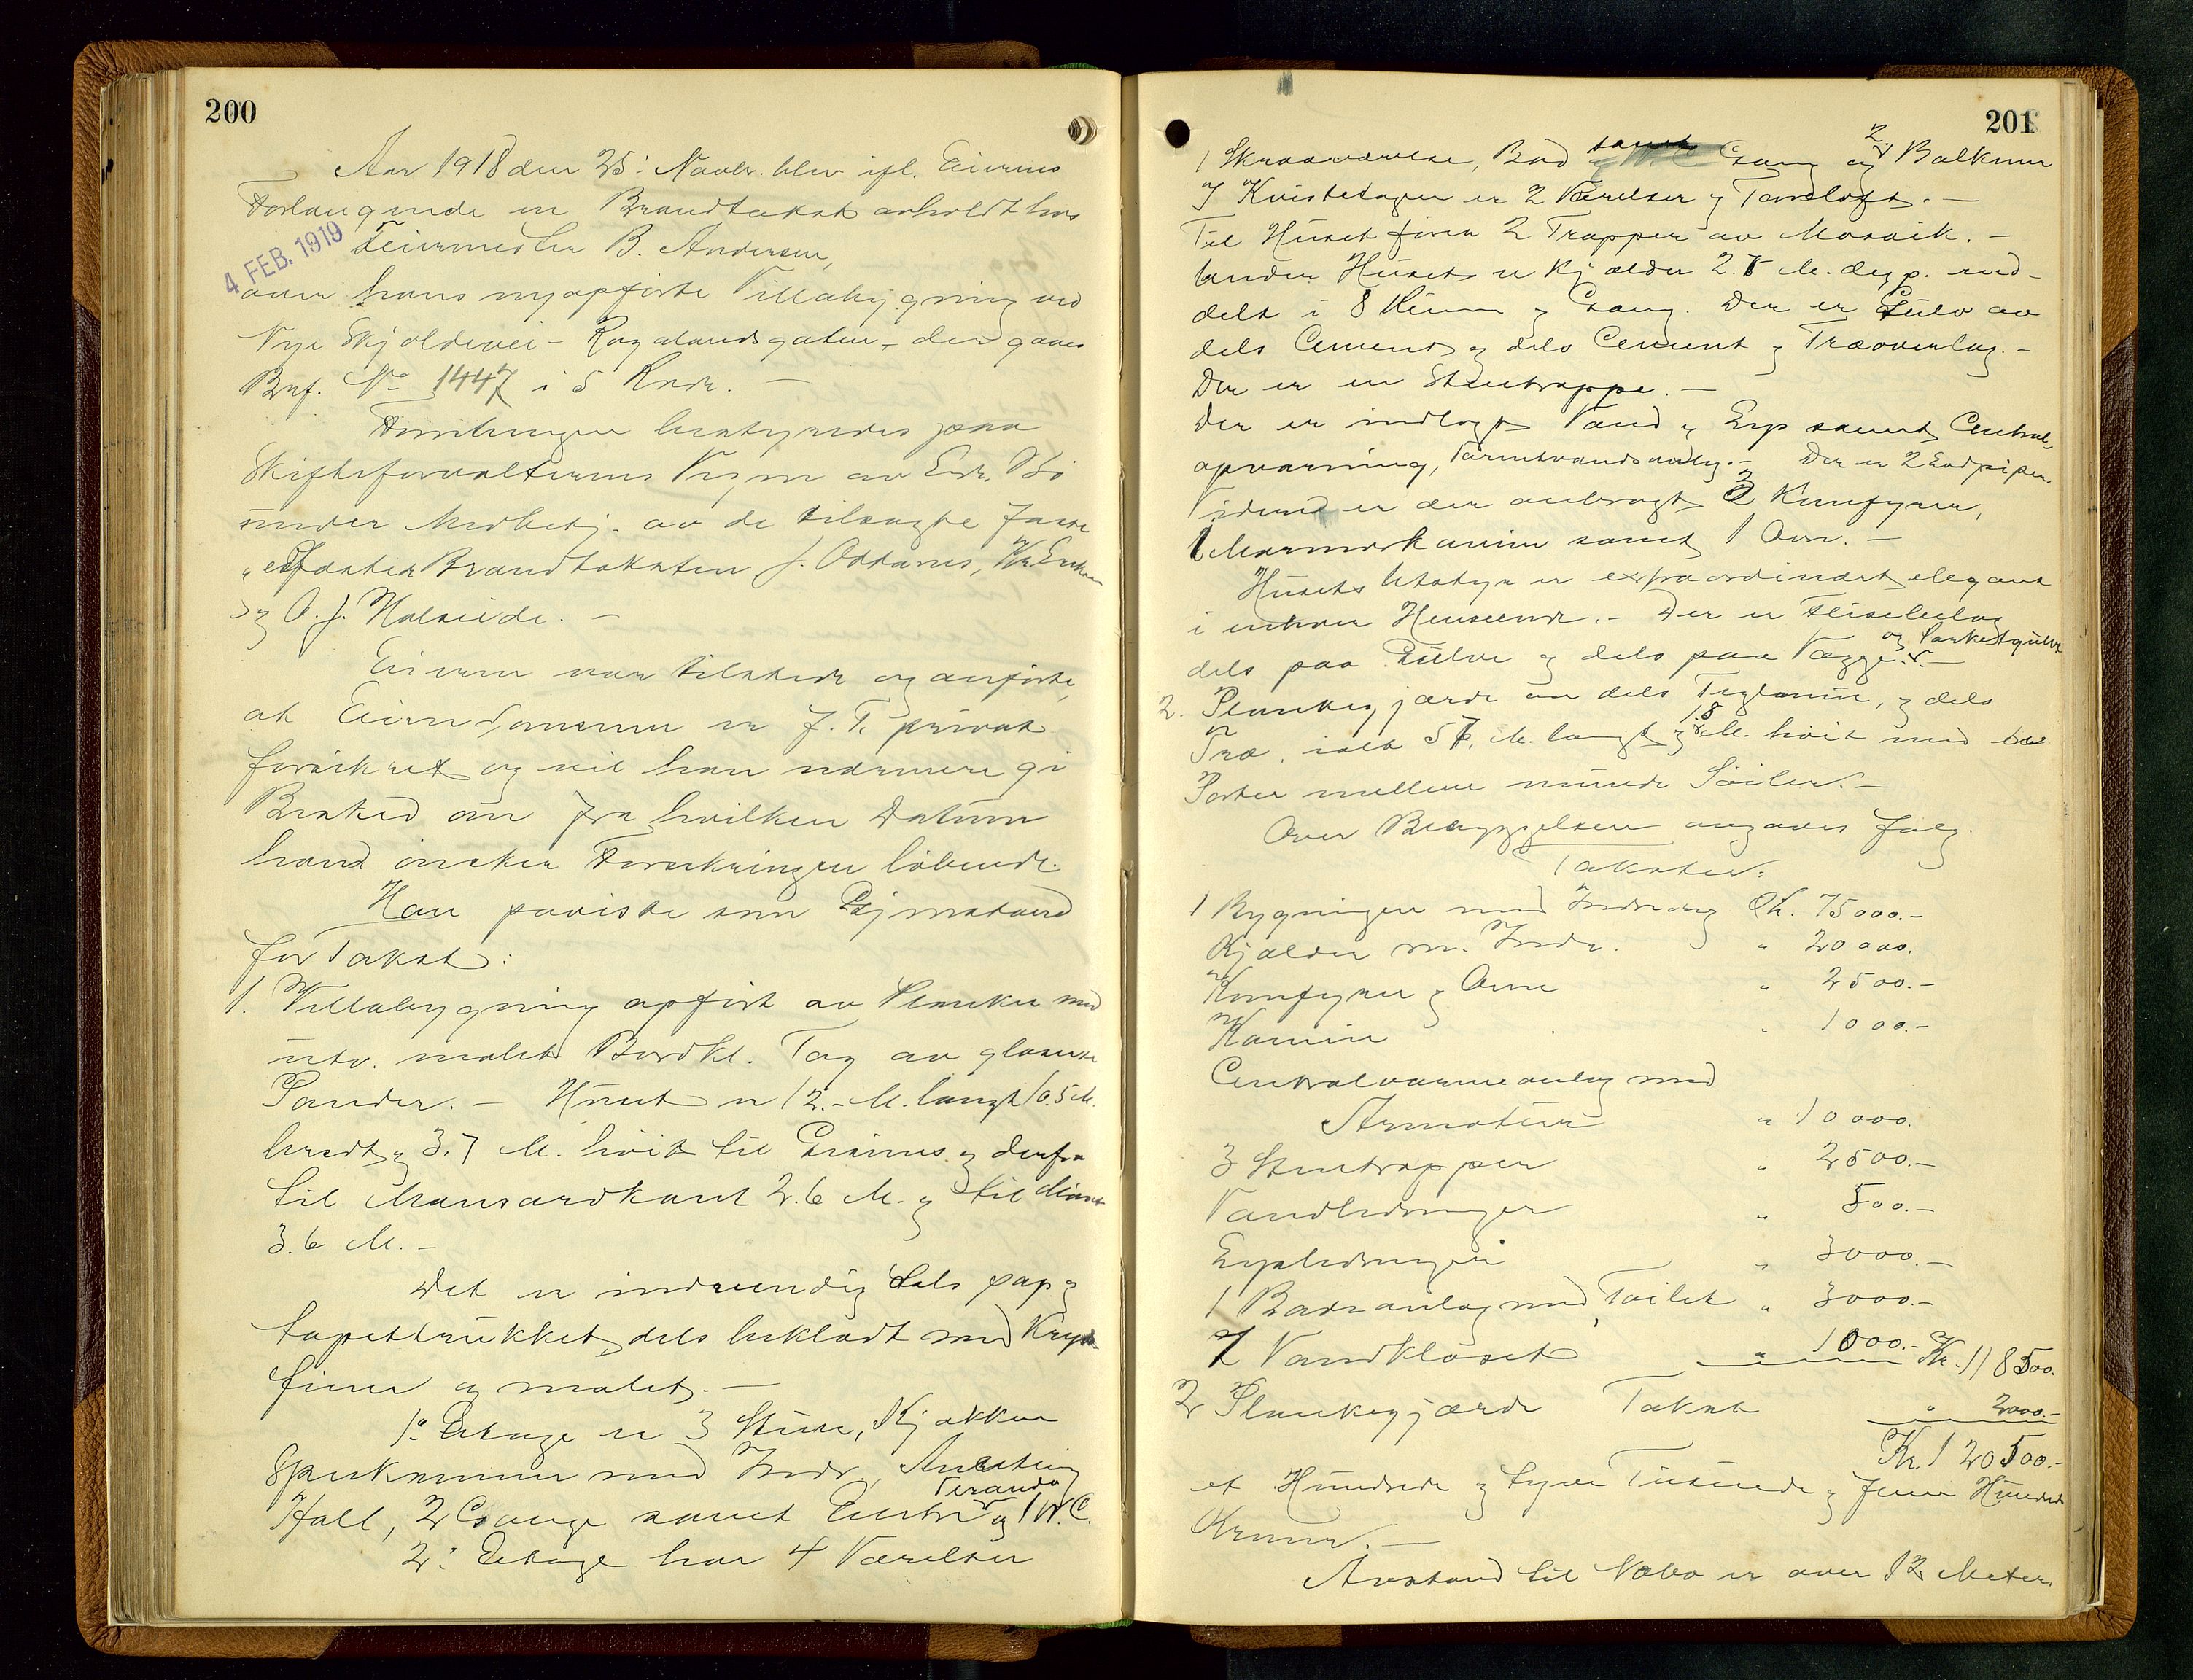 200
Aar 1918 den 25: Novbr. blev ifl. Eierens
Forlangende en Brandtakst avholdt hos
Feiermester B. Andersen,
4 FEB. 1919
over hans nyopførte Villabygning ved
Nye Skjoldevei - Rogalandsgaten, der gaves
Brf. No 1447 i 5 Rode. -
Forretningen bestyredes paa
Skifteforvalterens Vegne av
under Medbetj. av de tilsagte faste
Brandtakster J. Ottarnes, Kr. Eriksen
og O. J. Halseide. -
Eieren var tilstede og anførte,
at Eiendommen er f. T. privat
forsikret og vil han nærmere gi
Besked om fra hvilken Datum
hand ønsker Forsikringen løbende.
Han paaviste som Gjenstand
for Takst:
1. Villabygning opført av Planker med
utv. malet Bordkl. Tag av glaserte
Pander. - Huset er 12.- M. langt 10.5 M.
bredt og 3.7 M. høit til Gesims og derfra
til Mansardkant 2.6 M. og til Mønet
3.6 M. -
Det er indvendig dels pap og
tapettrukket, dels beklædt med Kryds
finer og malet. -
1ste Etage er 3 Stuer, Kjøkken
Spiskammer med Indr., Anretning
Veranda
Hall, 2 Gange samt Entre og 1 W.C.
2: Etage har 4 Værelser
201
1 Skraaværelse, Bad samt Gang og 2 Balkoner
I Kvistetagen er 2 Værelser og Tørreloft. -
Til Huset fører 2 Trapper av Mosaik. -
Under Huset er Kjælder 2.5 M. dyp. ind-
delt i 8 Rum og Gang. Der er Gulv av
dels Cement og dels Cement og Træoverlag. -
Der er en Stentrappe. -
Der er indlagt Vand og Lys samt Central-
opvarming, Varmtvandsanlæg. - Der er 2 Lodpiper
Videre er der anbragt 3 Komfyrer,
1 Marmorkamin samt 1 Ovn. -
Husets Utstyr er extraordinært elegant
i enhver Henseende. - Der er Flisebelæg
og Parketgulve
dels paa Gulve og dels paa Vægge. -
2. Plankegjærde av dels Teglmur, og dels
Træ, ialt 57, M. langt og 1.8 M. høit med to
Porter mellem murede Søiler. -
Over Bebyggelsen avgaves følg.
Takster:
1 Bygningen med Indredning Kr. 75000.-
Kjælder m. Indr. " 20000.
Komfyrer og Ovne " 2500.-
Kamin " 1000.-
Centralvarmeanlæg med
Armatur " 10000.
3 Stentrapper " 2500.-
Vandledninger " 500.-
Lysledninger " 3000.-
1 Badeanlæg med Toilet " 3000.-
2 Vandkloset " 1000.- Kr. 118500.
2 Plankegjærde Takst " 2000.-
Kr. 120500.-
et Hundrede og tyve Tusinde og fem Hundrede
Kroner. -
Avstand til Nabo er over 12 Meter.